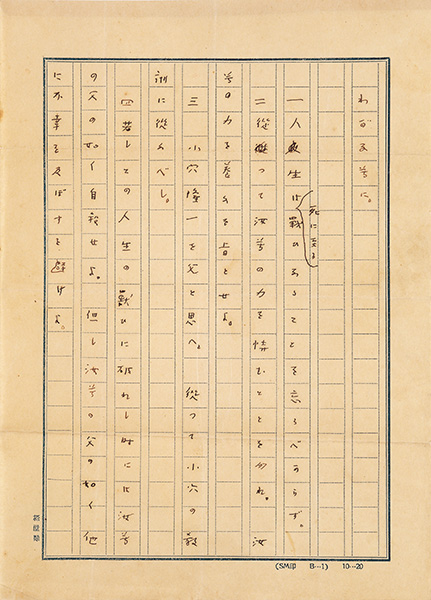 わが子等に。
一人生は死に至る戰ひなることを忘るべからず。
二從つて汝等の力を恃むことを勿れ。汝
等の力を養ふを旨とせよ。
三 小穴隆一を父と思へ。從つて小穴の教
訓に從ふべし。
四若しこの人生の戰ひに破れし時には汝等
の父の如く自殺せよ。但し汝等の父の如く他
に不幸を及ぼすを避けよ。
(SM印 B…1) 10…20